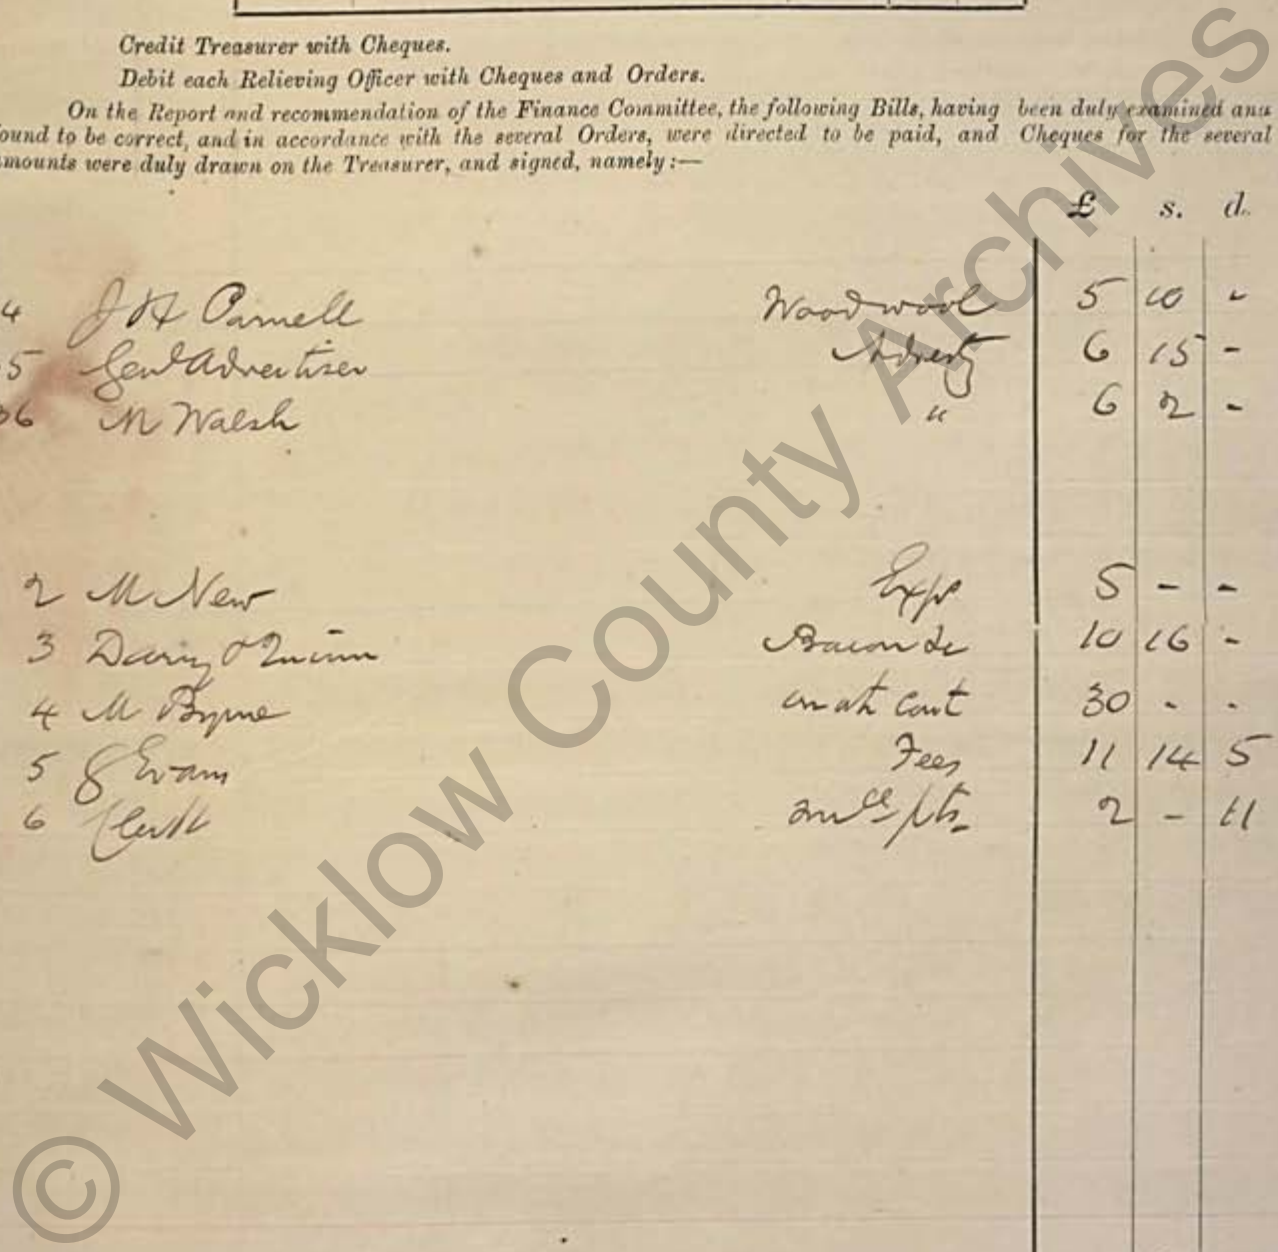 Credit Treasurer with Cheques.
Debit each Relieving Officer with Cheques and Orders.
On the Report and recommendation of the Finance Committee, the following Bills, having been duly examined and
ound to be correct, and in accordance with the several Orders, were directed to be paid, and Cheques for the several
mounts were duly drawn on the Treasurer, and signed, namely:—
£ s. d.
4 J H Parnell Woodwool 5 10 -
5 Genl Advertiser Advertg 6 15 -
36 M Walsh " 6 2 -
2 M New Exps 5 - -
3 Quinn Bacon &c 10 16 -
4 M Byrne on a/c Cont 30 - -
5 Evans Fees 11 14 5
6 Clerk 2 - 11
© Wicklow County Archives